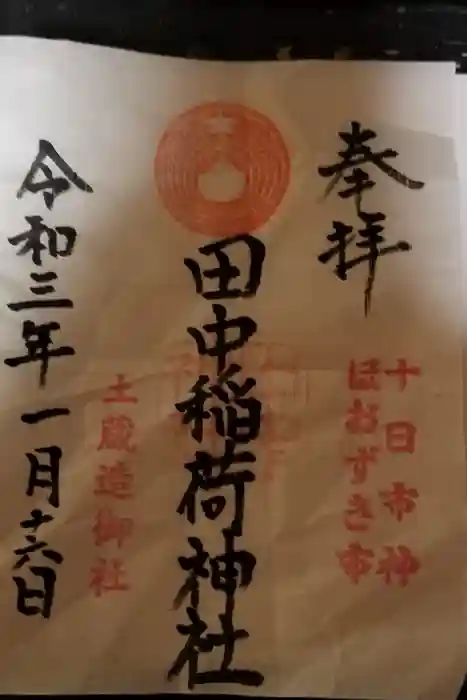 奉拝
十日市神
ほおずき市
田中稲荷神社
土蔵造御社
令和三年一月十六日